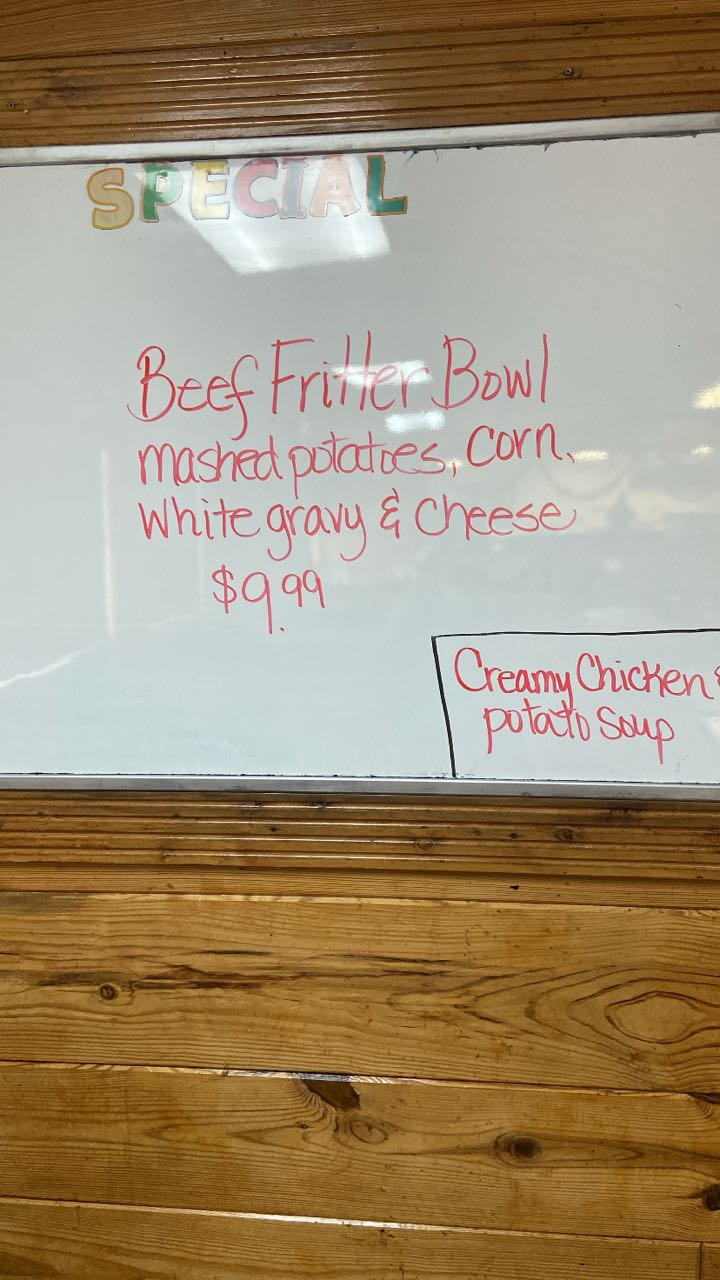 SPECIAL
Beef Fritter Bowl
mashed potatoes, corn,
White gravy & Cheese
$9.99
Creamy Chicken &
potato Soup